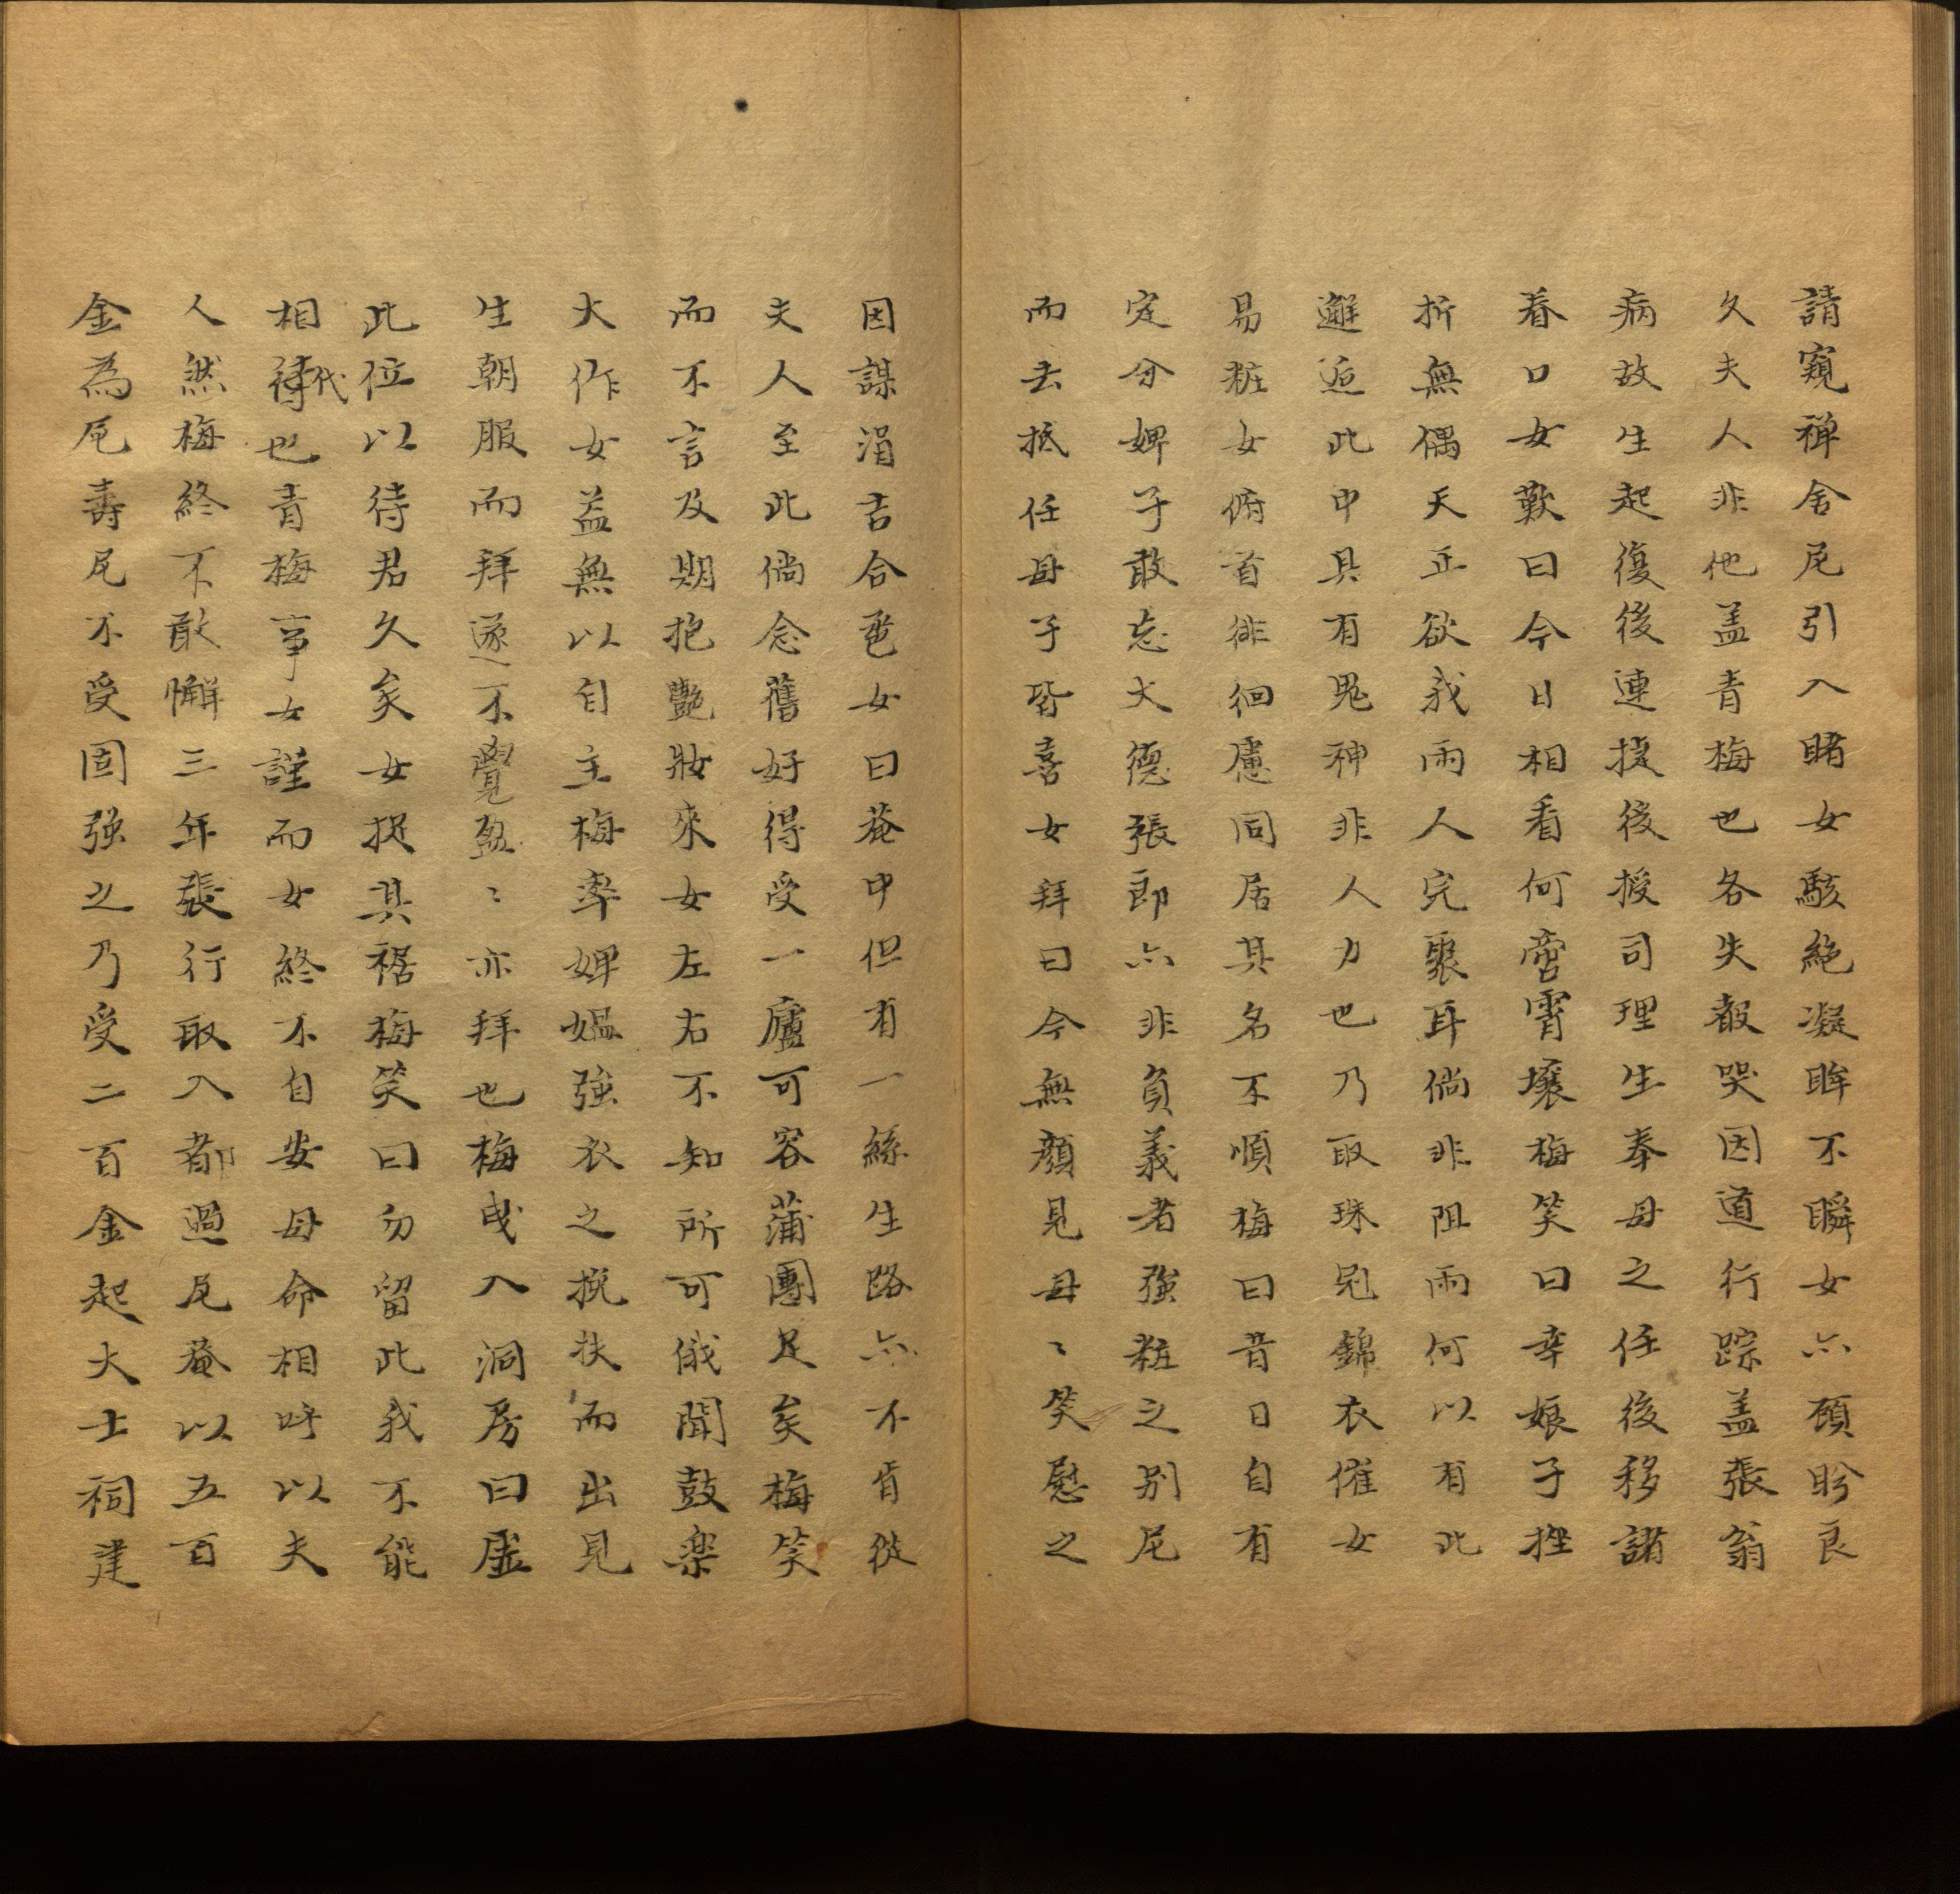 請窺禪舍尼引入睹女駭絶凝眸不瞬女亦顧盼良
久夫人非他盖青梅也各失聲哭因道行踪盖張翁
病故生起復後連捷後授司理生奉母之任後移諸
眷口女歎曰今日相看何啻霄壤梅笑曰幸娘子挫
折無偶天正欲我兩人完聚耳倘非阻雨何以有此
邂逅此中具有鬼神非人力也乃取珠冠錦衣催女
易粧女俯首徘徊慮同居其名不順梅曰昔日自有
定分婢子敢忘大德張郎亦非負義者強粧之別尼
而去抵任母子皆喜女拜曰今無顔見母〻笑慰之
因謀涓吉合卺女曰菴中但有一絲生路亦不肯從
夫人至此倘念舊好得受一廬可容蒲團足矣梅笑
而不言及期抱艷妝來女左右不知所可俄聞鼓楽
大作女益無以自主梅率婢媼強衣之挽扶而出見
生朝服而拜遂不覺盈〻亦拜也梅曳入洞房曰虛
此位以待君久矣女捉其裾梅笑曰勿留此我不能
相代也青梅事女謹而女終不自安母命相呼以夫
人然梅終不敢懈三年張行取入都過尼菴以五百
金為尼壽尼不受固強之乃受二百金起大士祠建